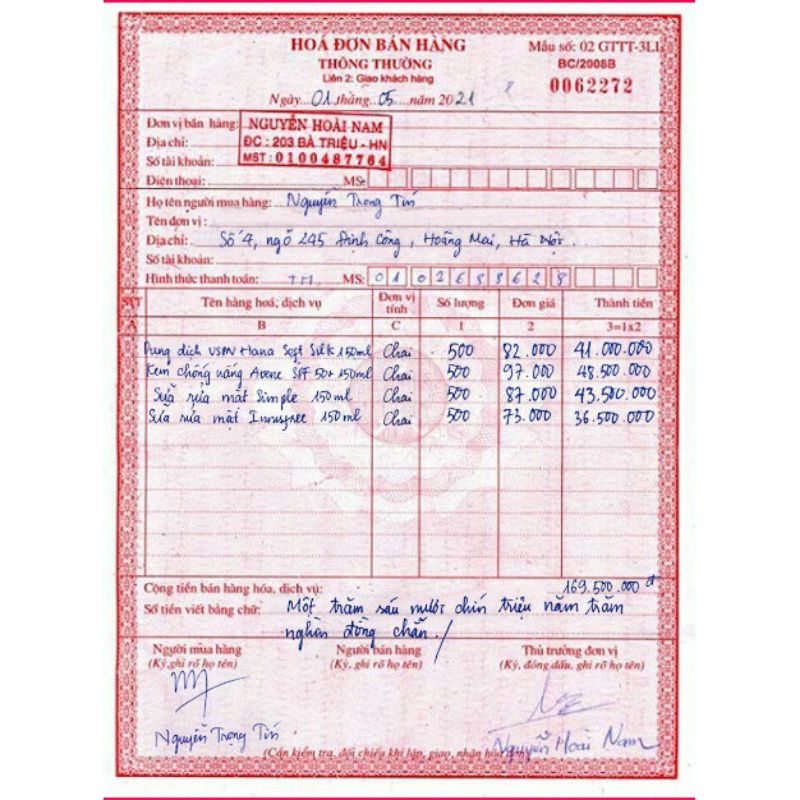 HOÁ ĐƠN BÁN HÀNG
THÔNG THƯỜNG
Liên 2: Giao khách hàng
Ngày...01 tháng...05...năm 2021
Mẫu số: 02 GTTT-3LL
BC/2008B
0062272
Đơn vị bán hàng: NGUYỄN HOÀI NAM
Địa chỉ: ĐC : 203 BÀ TRIỆU - HN
Số tài khoản: MST : 0100487764
Điện thoại: MS:
Họ tên người mua hàng: Nguyễn Trọng Tín
Tên đơn vị:
Địa chỉ: Số 4, ngõ 245 Định Công, Hoàng Mai, Hà Nội.
Số tài khoản:
Hình thức thanh toán: TM MS: 01 02688628
STT Tên hàng hoá, dịch vụ Đơn vị tính Số lượng Đơn giá Thành tiền
A B C 1 2 3=1x2
Dung dịch Hana Soft Silk 150ml Chai 500 82.000 41.000.000
Kem chống nắng Avene SPF 50+ 150ml Chai 500 97.000 48.500.000
Sữa rửa mặt Simple 150ml Chai 500 87.000 43.500.000
Sữa rửa mặt Innisfree 150ml Chai 500 73.000 36.500.000
Cộng tiền bán hàng hóa, dịch vụ: 169.500.000 đ
Số tiền viết bằng chữ: Một trăm sáu mươi chín triệu năm trăm
nghìn đồng chẵn./
Người mua hàng Người bán hàng Thủ trưởng đơn vị
(Ký, ghi rõ họ tên) (Ký, ghi rõ họ tên) (Ký, đóng dấu, ghi rõ họ tên)
Nguyễn Trọng Tín Nguyễn Hoài Nam
(Cần kiểm tra, đối chiếu khi lập, giao, nhận hoá đơn)